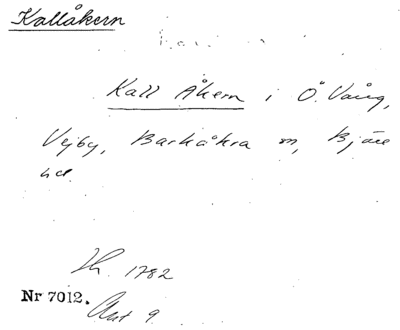 Kallåkern
Kall Åkern i Ö. Vång,
Vejby, Barkåkra m, Bjäre
hd.
Lh. 1782
Nr 7012. Akt 9.